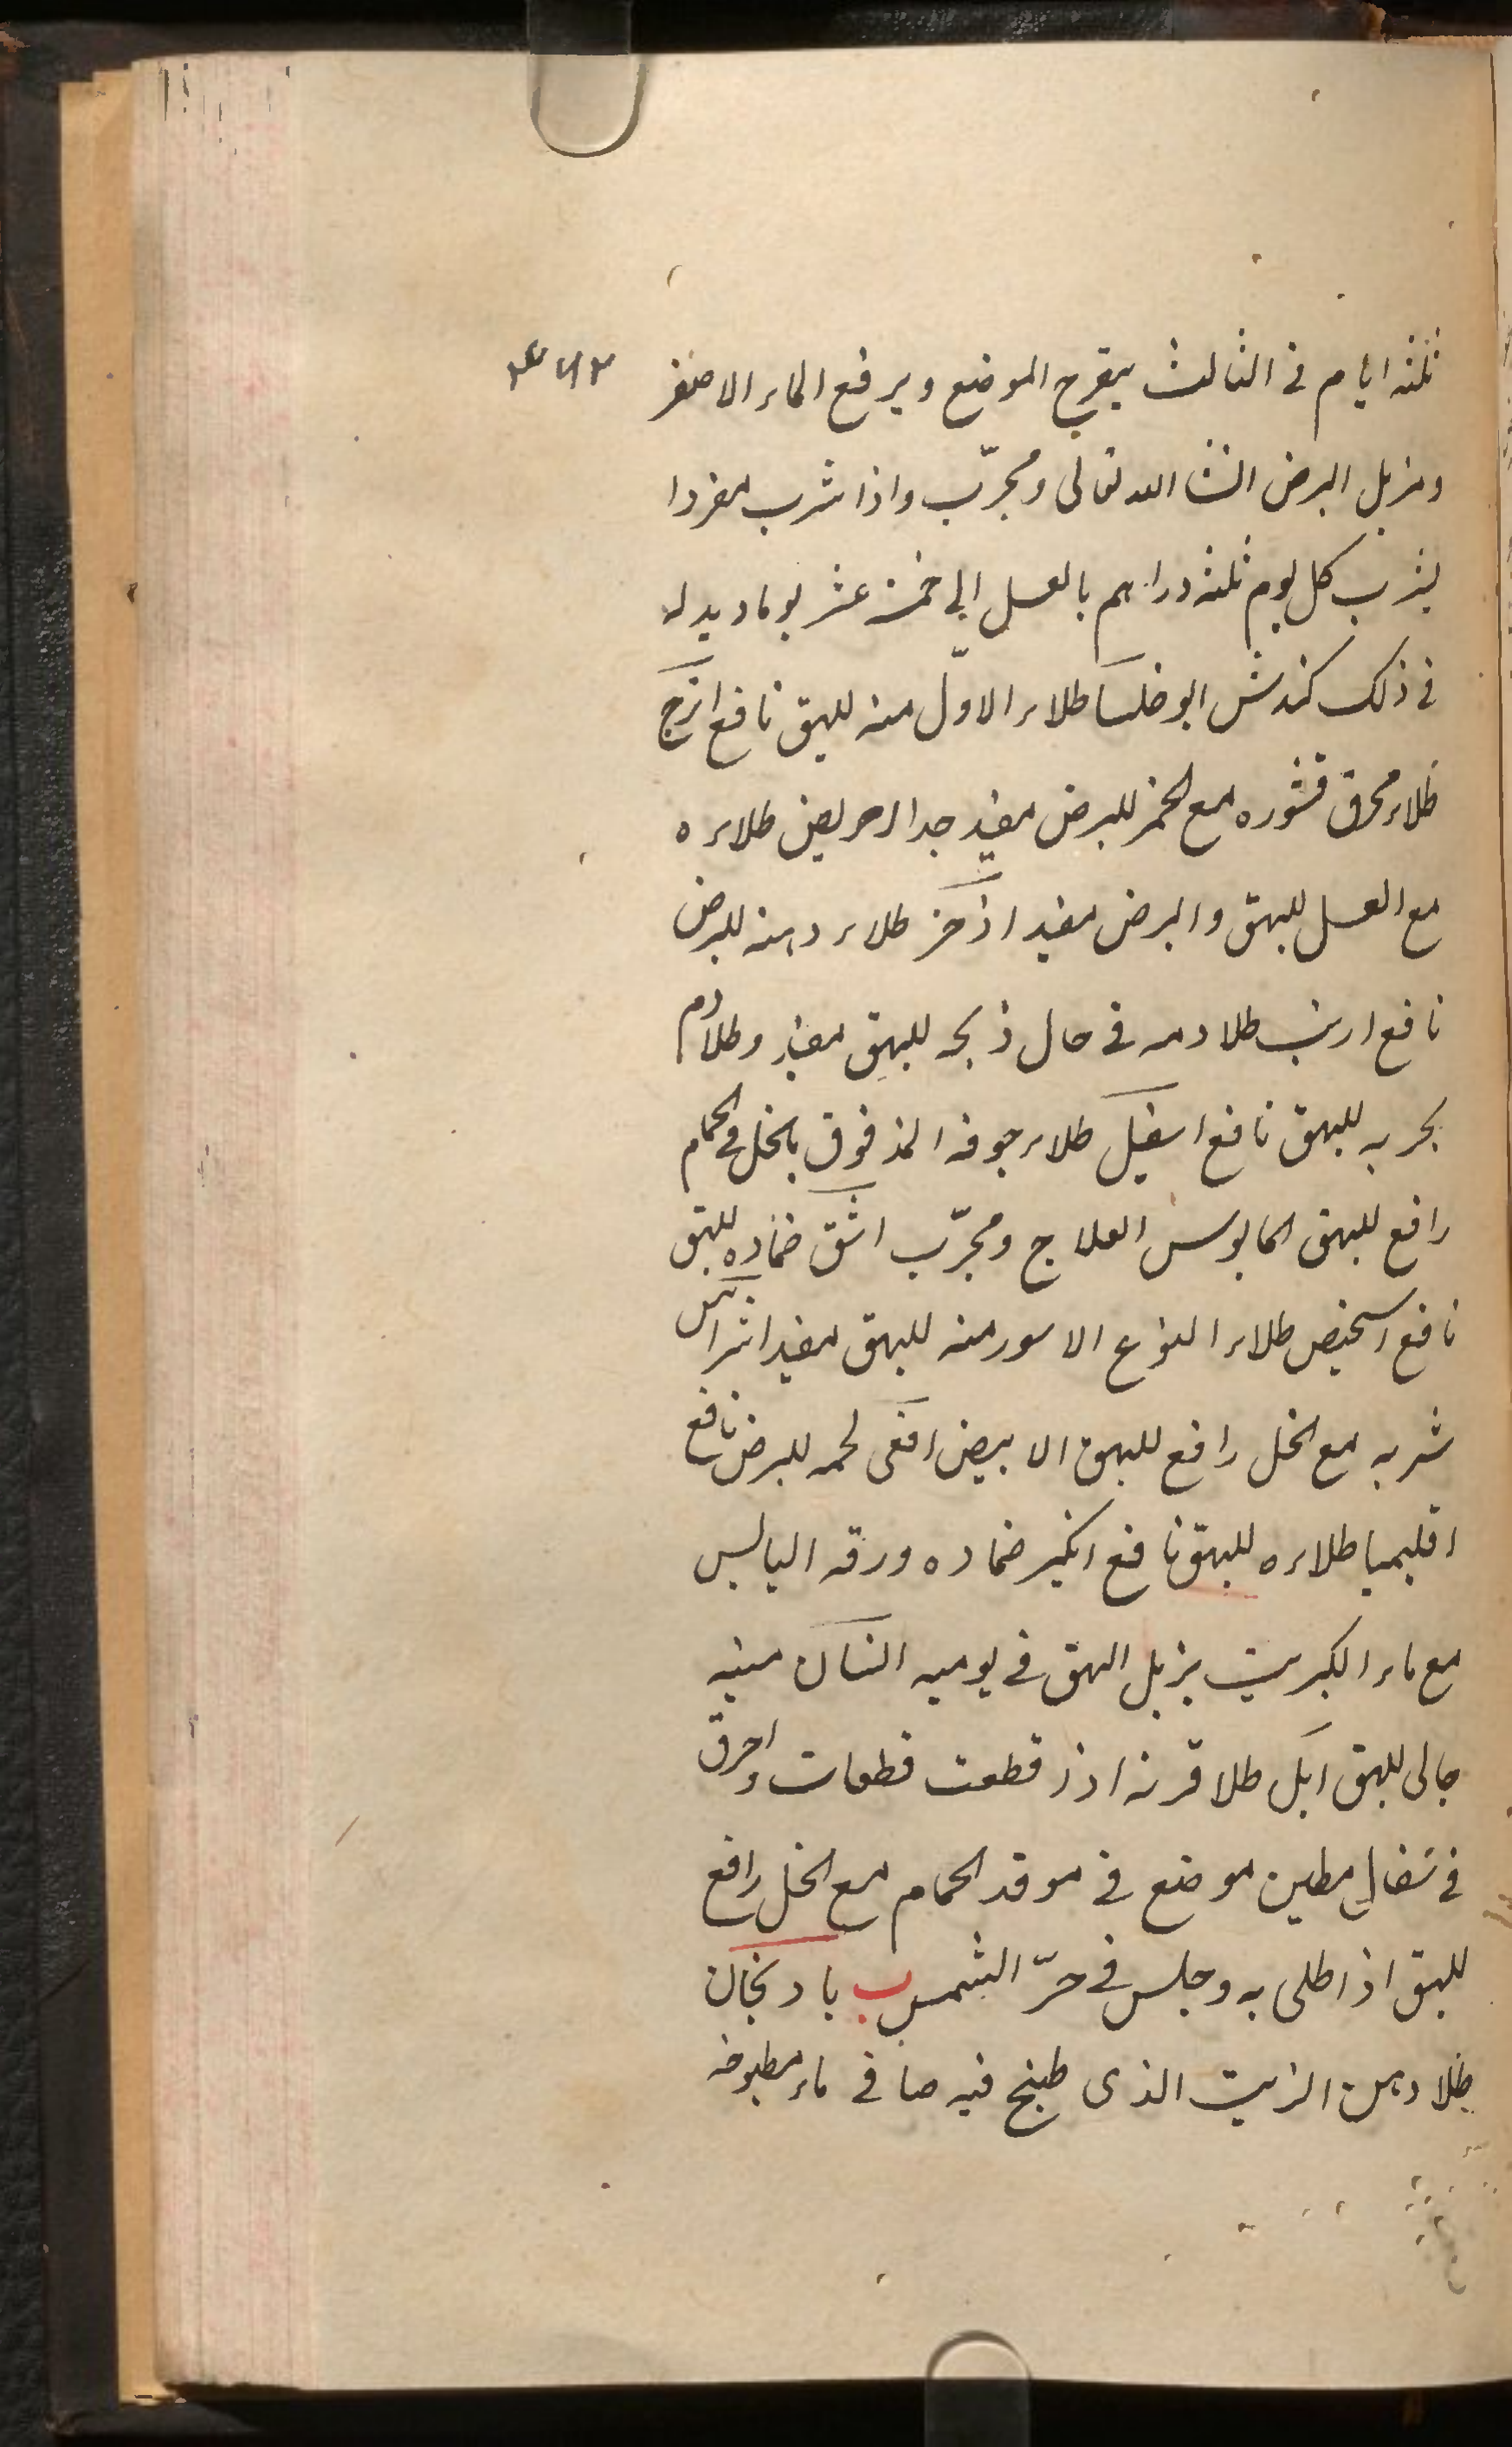 ثلثه ايام فى الثالث يتقرح الموضع ويرفع الماء الاصفر
ويزيل البرص انشا الله تعالى ومجرّب واذا شرب مفردا
يشرب كل يوم ثلثه دراهم بالعسل الى خمسة عشر يوما وبدله
فى ذلك كندش ابو خلسا طلاء الاوّل منه للبهق نافع اترج
طلاء محرق قشوره مع الخمر للبرص مفيد جدا احريض طلاءه
مع العسل للبهق والبرص مفيد اذخر طلاء دهنه للبرص
نافع ارنب طلا دمه فى حال ذبحه للبهق مفيد وطلا دم
بحريه للبهق نافع اسقيل طلاء جوفه المدقوق بالخل فى الحمام
رافع للبهق المايوس العلاج ومجرّب اشق ضماده للبهق
نافع اسخيص طلاء النوع الاسود منه للبهق مفيد اشراس
شربه مع الخل رافع للبهق الابيض افعى لحمه للبرص نافع
اقليميا طلاءه للبهق نافع انجير ضماده ورقه اليابس
مع ماء الكبريت يزيل البهق فى يوميه انسان منيه
جالى للبهق ايل طلا قرنه اذا قطعت قطعات واحرق
فى سفال مطين موضع فى موقد الحمام مع الخل رافع
للبهق اذا طلى به وجلس فى حرّ الشمس ب بادنجان
طلا دهن الزيت الذى طبخ فيه صافى ماء مطبوخه